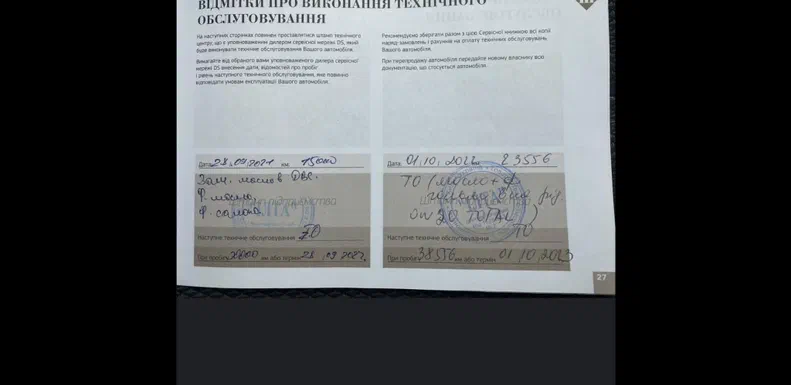 ВІДМІТКИ ПРО ВИКОНАННЯ ТЕХНІЧНОГО
ОБСЛУГОВУВАННЯ
На наступних сторінках повинен проставлятися штамп технічного
центру, що є уповноваженим дилером сервісної мережі DS, який
буде виконувати технічне обслуговування Вашого автомобіля.
Вимагайте від обраного вами уповноваженого дилера сервісної
мережі DS внесення дати, відомостей про пробіг
і рівень наступного технічного обслуговування, яке повинно
відповідати умовам експлуатації Вашого автомобіля.
Рекомендуємо зберігати разом з цією Сервісною книжкою всі копії
наряд-замовлень і рахунків на оплату технічних обслуговувань
Вашого автомобіля.
При перепродажу автомобіля передайте новому власнику всю
документацію, що стосується автомобіля.
Дата 28,09,2021 км. 15000
Зам. масло в ДВС.
Ф. масло.
Ф. салона.
Штамп підприємства
Наступне технічне обслуговування ТО
При пробігу 30000 км або термін 28 09 2022
Дата 01,10,2022 км 23556
ТО (масло + ф
підприємства
20 TOTAL)
Наступне технічне обслуговування ТО
При пробігу 38556 км або термін 01 10,2023
27